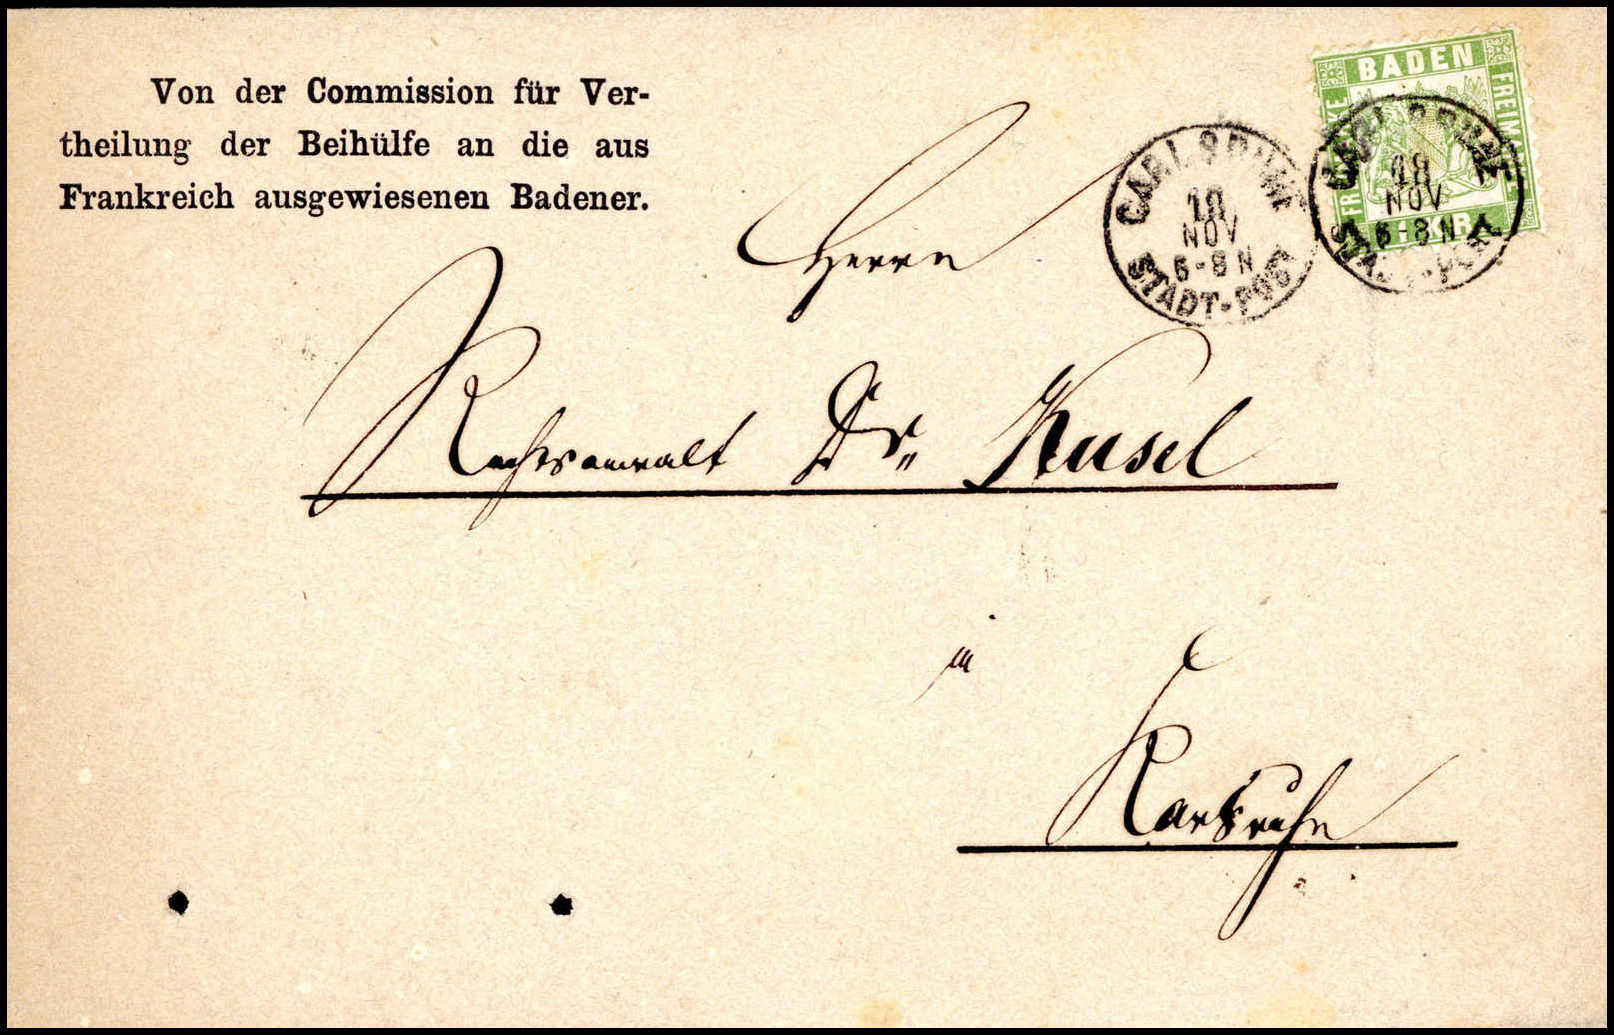 Von der Commission für Ver-
theilung der Beihülfe an die aus
Frankreich ausgewiesenen Badener.
BADEN
FREIMARKE
FREIMARKE
1 KR.
CARLSRUHE
18
NOV
6-8 N
STADT-POST
CARLSRUHE
18
NOV
6-8 N
STADT-POST
Herrn
Rechtsanwalt Dr. Kusel
in
Karlsruhe